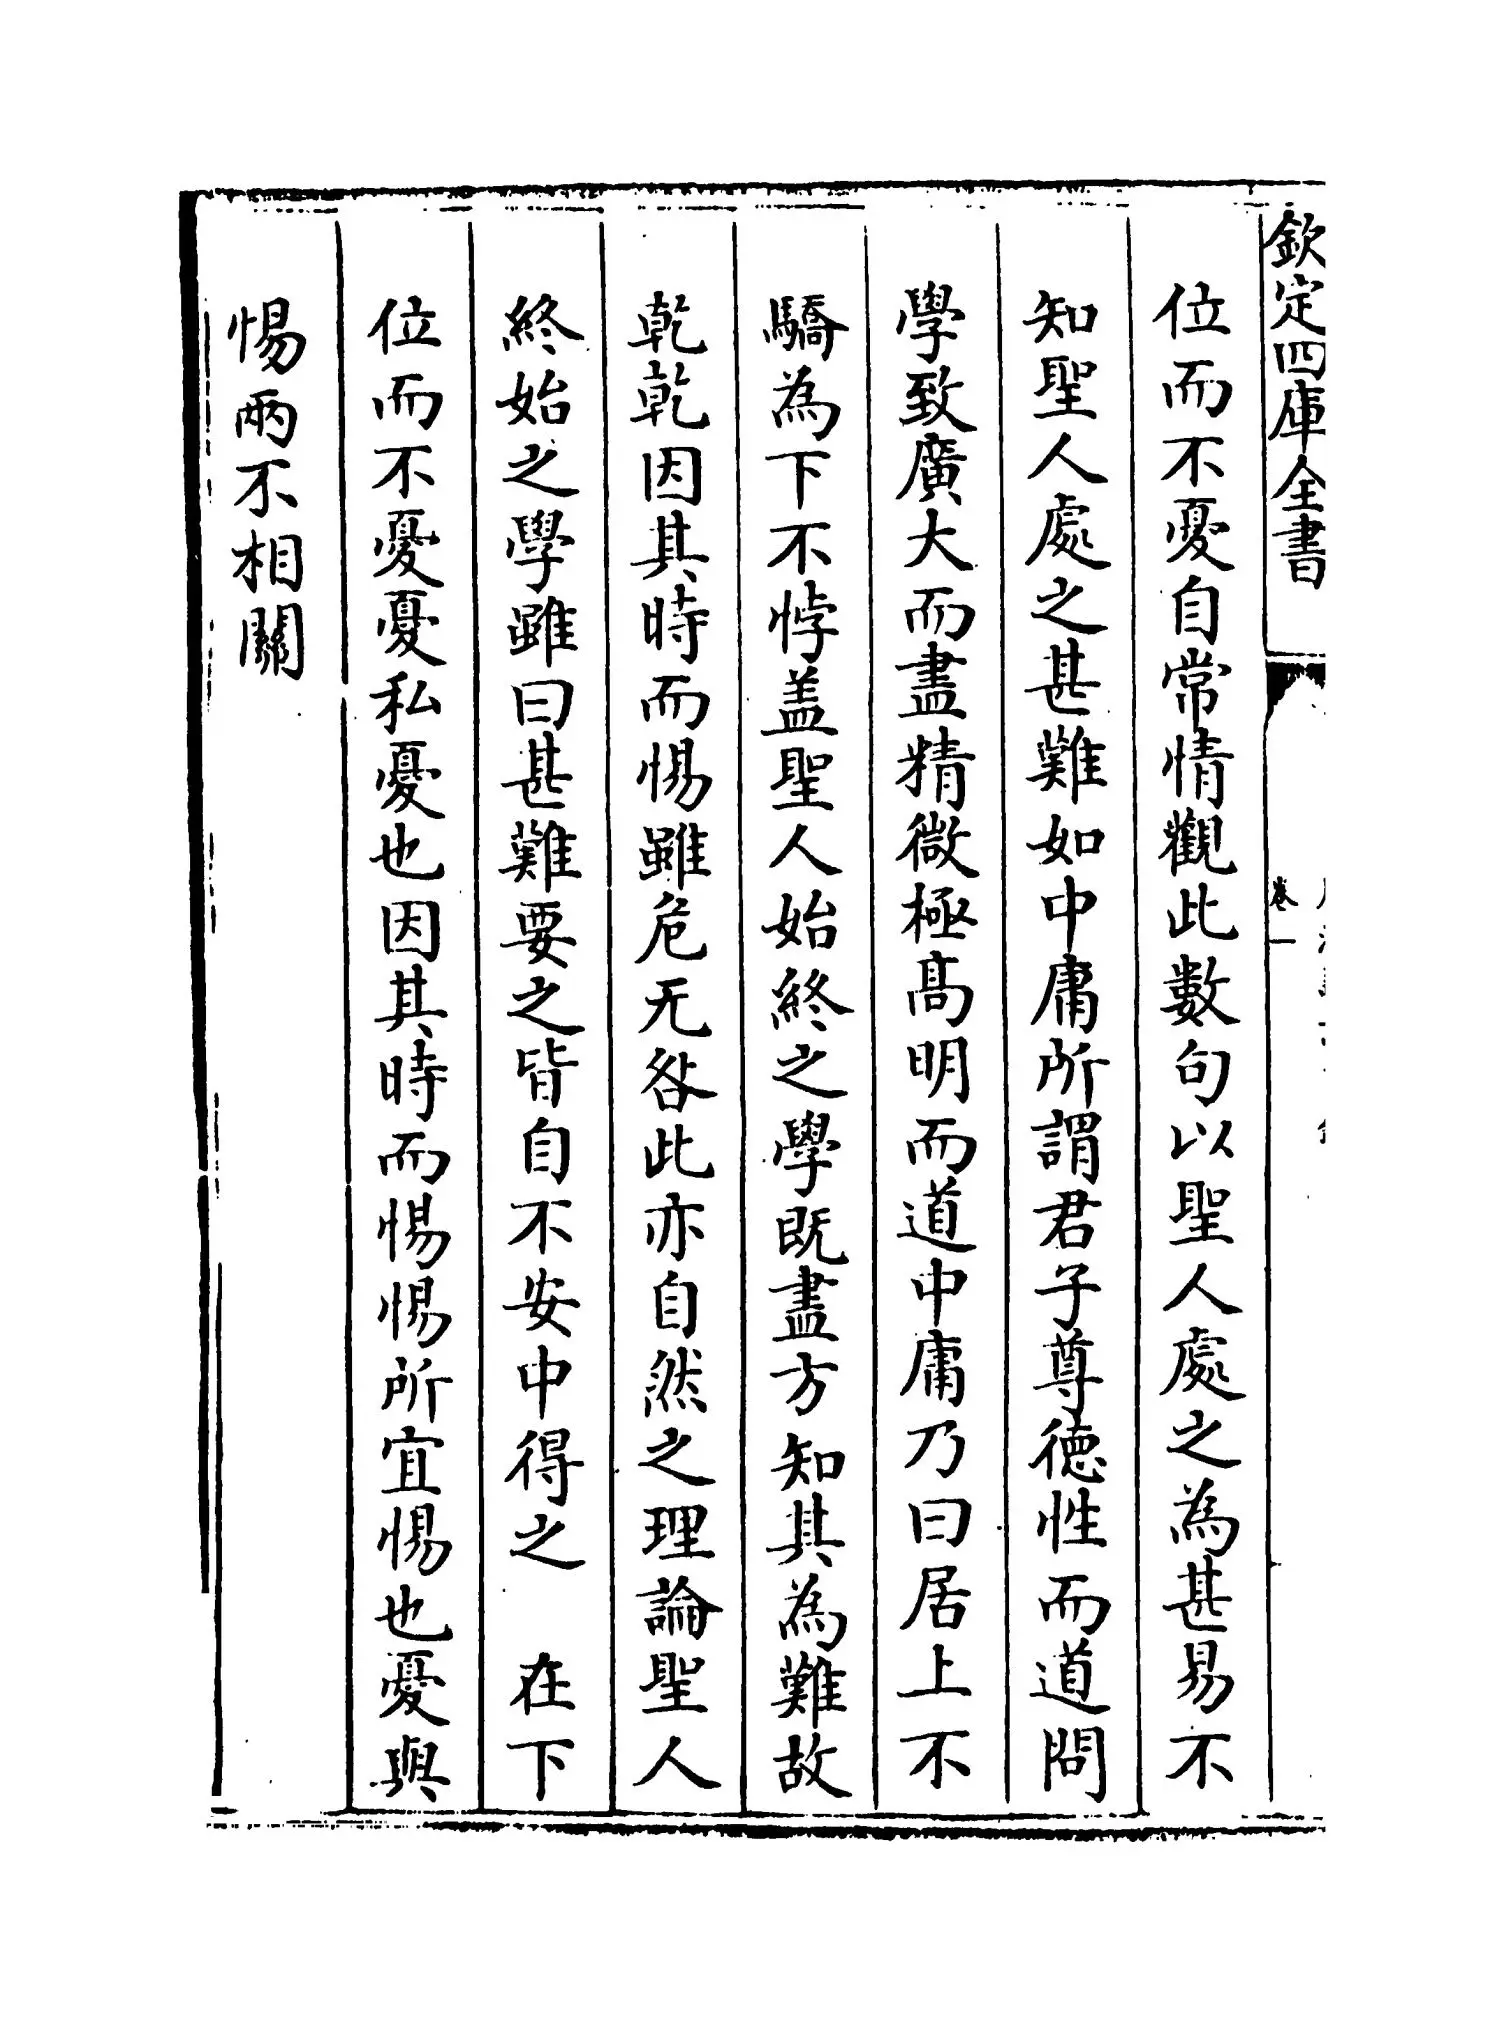 欽定四庫全書
卷一
位而不憂自常情觀此數句以聖人處之為甚易不
知聖人處之甚難如中庸所謂君子尊德性而道問
學致廣大而盡精微極髙明而道中庸乃曰居上不
驕為下不悖盖聖人始終之學既盡方知其為難故
乾乾因其時而惕雖危无咎此亦自然之理論聖人
終始之學雖曰甚難要之皆自不安中得之　在下
位而不憂憂私憂也因其時而惕惕所宜惕也憂與
惕兩不相關